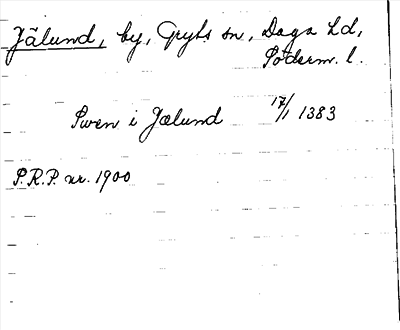 Jälund, by, Gryts sn, Daga hd,
Söderm. l.
Swen i Jælund 17/1 1383
P.R.P. nr. 1900